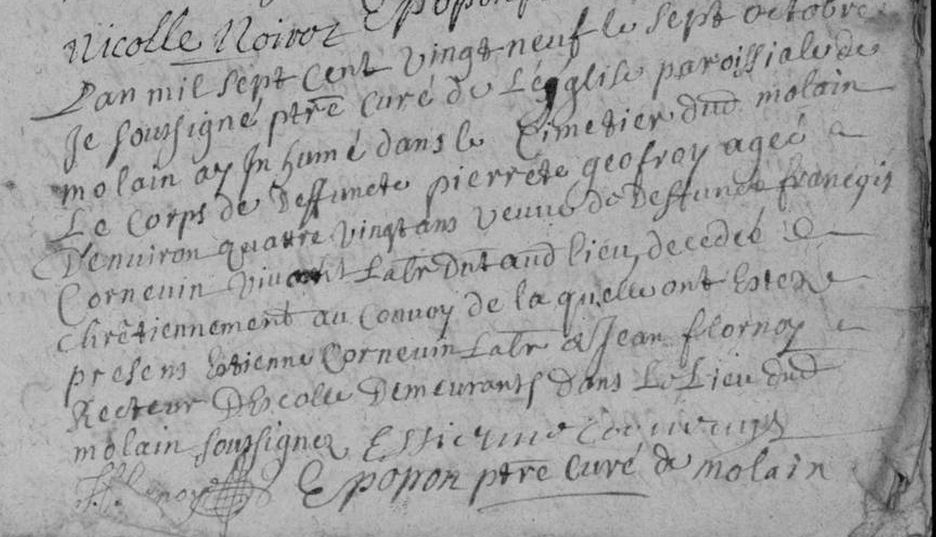 Nicolle Noirot Epopon
L'an mil sept cent vingt neuf le sept octobre
Je soussigné ptre curé de L'église paroissiale de
molain ay Inhumé dans le Cimetier dud molain
Le Corps de Deffuncte pierrete geofroy ageé
D'environ quatre vingt ans veuve de Deffunct françois
Cornevin vivant Labr Dmt aud lieu, decedeé
chrêtiennement au Convoy de la quelle ont Esteé
presens Estienne Cornevin Labr & Jean flornoy
Recteur D'Escolle Demeurants dans Le Lieu dud
molain soussignez Estienne Cornevin
Flornoy Epopon ptre curé de molain